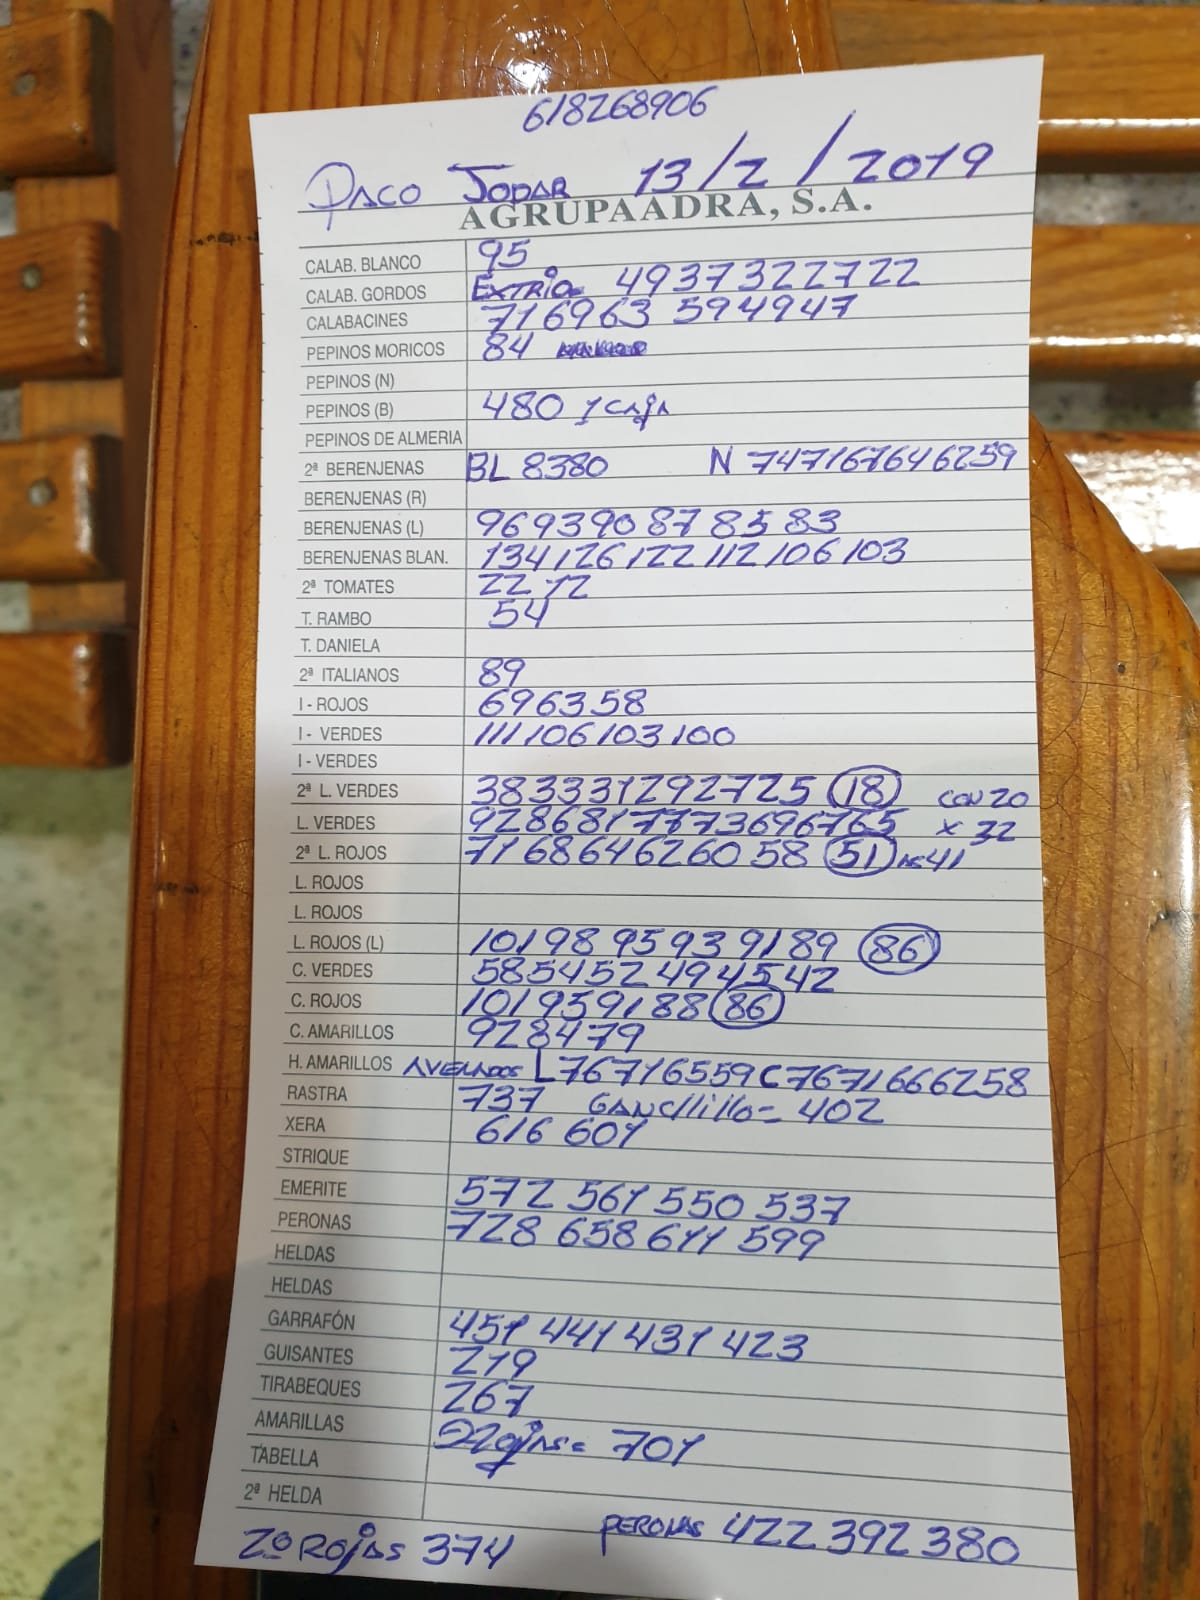 618268906
PACO JODAR 13/2/2019
AGRUPAADRA, S.A.
CALAB. BLANCO 95
CALAB. GORDOS EXTRIA 4937322722
CALABACINES 716963 594947
PEPINOS MORICOS 84
PEPINOS (N)
PEPINOS (B) 480 1 CAJA
PEPINOS DE ALMERIA
2ª BERENJENAS BL 8380 N 747167646259
BERENJENAS (R)
BERENJENAS (L) 969390878583
BERENJENAS BLAN. 134126122112106103
2ª TOMATES 22 12
T. RAMBO 54
T. DANIELA
2ª ITALIANOS 89
I - ROJOS 696358
I - VERDES 111106103100
I - VERDES
2ª L. VERDES 383331292725 18 CON 20
L. VERDES 9286817773696765 x 32
2ª L. ROJOS 716864626058 51 41
L. ROJOS
L. ROJOS
L. ROJOS (L) 1019895939189 86
C. VERDES 585452494542
C. ROJOS 101959188 86
C. AMARILLOS 928479
H. AMARILLOS AVELLADOS L76716559C7671666258
RASTRA 737 GANCHILLO= 402
XERA 616 601
STRIQUE
EMERITE 572 561 550 537
PERONAS 728 658 611 599
HELDAS
HELDAS
GARRAFÓN 451 441 431 423
GUISANTES 219
TIRABEQUES 267
AMARILLAS = 701
TABELLA
2ª HELDA
2º ROJAS 374 PERONAS 422 392 380